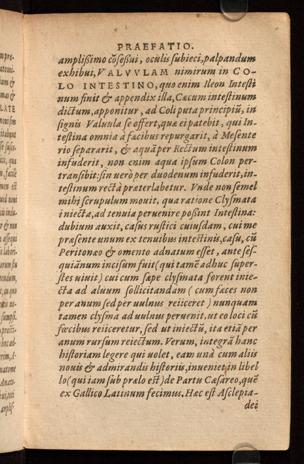 PRAEFATIO.
amplißimo cõseßui, oculis subieci, palpandum
exhibui, VALVVLAM nimirum in CO-
LO INTESTINO, quo enim Ileon Intesti
num finit & appendix illa, Cæcum intestinum
dictum, apponitur, ad Coli puta principiũ, in
signis Valuula se offert, qua ei patebit, qui In-
testina omnia à fæcibus repurgarit, à Mesente
rio separarit, & aquã per Rectum intestinum
infuderit, non enim aqua ipsum Colon per-
transibit: sin uerò per duodenum infuderit, in-
testinum rectũ præterlabetur. Vnde non semel
mihi scrupulum mouit, qua ratione Clysmata
iniecta, ad tenuia peruenire possint Intestina:
dubium auxit, casus rustici cuiusdam, cui me
præsente unum ex tenuibus intestinis, casu, cũ
Peritonæo & omento adnatum esset, ante ses-
quiãnum incisum fuit (qui tamẽ adhuc super-
stes uiuit) cui cum sæpe clysmata forent inie-
cta ad aluum sollicitandam (cum fæces non
per anum sed per uulnus reiiceret) nunquam
tamen clysma ad uulnus peruenit, ut eo loci cũ
fœcibus reiiceretur, sed ut iniectũ, ita etiã per
anum rursum reiectum. Verum, integrã hanc
historiam legere qui uolet, eam unà cum aliis
nouis & admirandis historiis, inueniet, in libel
lo (qui iam sub prælo est) de Partu Cæsareo, quẽ
ex Gallico Latinum fecimus. Hæc est Asclepia-
dei